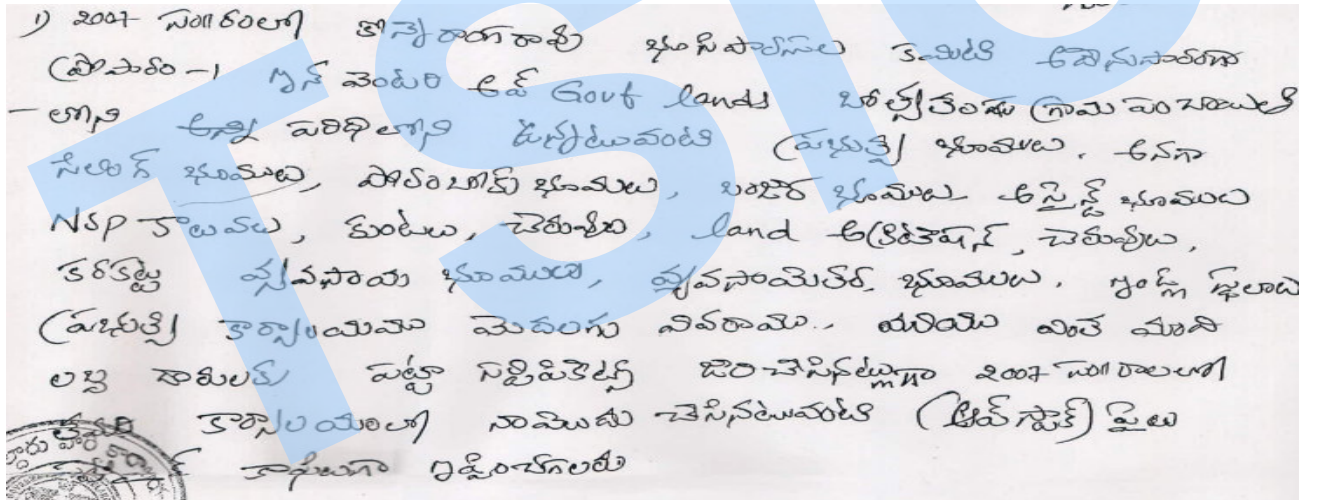 1) 2007 సం॥రంలో కోన్నేరు రంగారావు భూసిపారస్‌ల కమిటి ఆదేనుసారంగా
(ప్రొపారం-1 ఇన్ వెంటరి ఆఫ్ Govt lands బోత్స్యతండా గ్రామ పంచాయితి
-లోని అన్ని పరిధిలోని ఉన్నటువంటి ప్రభుత్వ భూములు, అనగా
సీలింగ్ భూములు, పోరంబోకు భూములు, బంజర్ భూములు అసైన్డ్ భూములు
NSP కాలువలు, కుంటలు, చెరువులు, land చెరువులు,
కరకట్ట వ్యవసాయ భూములు, వ్యవసాయెతర, భూములు, ఇండ్ల స్థలాలు
ప్రభుత్వ కార్యాలయము మొదలగు వివరాము.. మరియు ఎంత మంది
లబ్ది దారులకు పట్టా సర్టిపికెట్స్ జారి చేసినట్లుగా 2007 సం॥రాలలో
కార్యాలయంలో నామొదు చేసినటువంటి (ఆవ్ స్టాక్) ఫైలు
కాపీలుగా ఇప్పించగలరు
TSIC